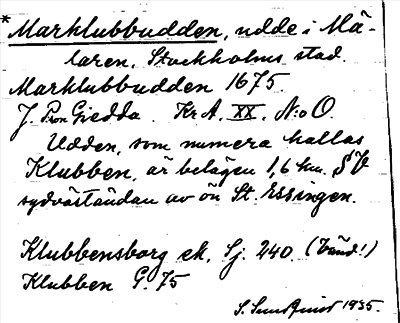 *Marklubbudden, udde i Mä-
laren, Stockholms stad.
Marklubbudden 1675.
J. Pson Giedda. Kr A. XX. N:o O.
Udden, som numera kallas
Klubben, är belägen 1,6 km. SV
sydväständan av ön St. Essingen.
Klubbensborg ek. Sj. 240. (Vänd!)
Klubben G. 75
S. 1935.